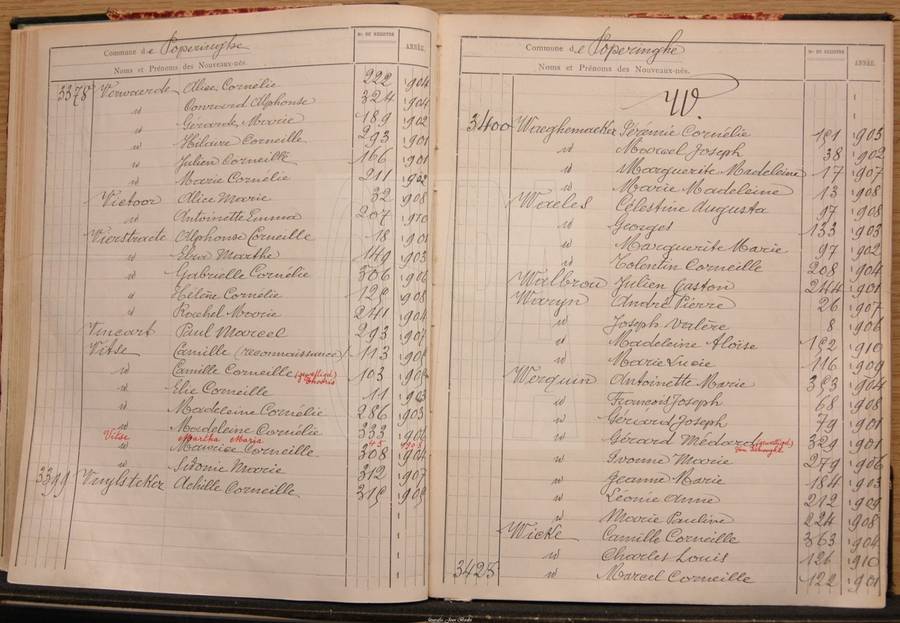 Commune de Poperinghe
Nos DE REGISTRE
ANNÉE.
Noms et Prénoms des Nouveaux-nés.
3378 Verwaerde Alice Cornélie 222 1904
id Conrard Alphonse 324 1904
id Gérarde Marie 189 1902
id Hilaire Corneille 293 1901
id Julien Corneille 166 1901
id Marie Cornélie 211 1902
Victoor Alice Marie 32 1908
id Antoinette Emma 207 1910
Vierstraete Alphonse Corneille 18 1901
id Elvir Marthe 149 1903
id Gabrielle Cornélie 306 1906
id Hélène Cornélie 125 1908
id Rachel Marie 241 1904
Vincart Paul Marcel 293 1907
Vitse Camille (reconnaissance) 113 1905
id Camille Corneille (gewettigd) 103 1905
id Elie Corneille 11 1903
id Madeleine Cornélie 286 1903
id Madeleine Cornélie 333 1906
Vitse Martha Maria 45 1903
id Maurice Corneille 308 1904
id Sidonie Marie 312 1907
3399 Vuylsteker Achille Corneille 315 1905
Commune de Poperinghe
Nos DE REGISTRE
ANNÉE.
Noms et Prénoms des Nouveaux-nés.
W.
3400 Waeghemaeker Jérémie Cornélie 151 1905
id Marcel Joseph 38 1902
id Marguerite Madeleine 17 1907
id Marie Madeleine 13 1908
Waeles Célestine Augusta 97 1908
id Georges 133 1903
id Marguerite Marie 97 1902
id Tolentin Corneille 208 1904
Walbrou Julien Gaston 244 1901
Waryn André Pierre 26 1907
id Joseph Valère 8 1906
id Madeleine Aloïse 152 1910
id Marie Lucie 116 1909
Werquin Antoinette Marie 353 1904
id François Joseph 68 1908
id Gérard Joseph 79 1901
id Gérard Médard (gewettigd) 329 1901
id Ivonne Marie 279 1906
id Jeanne Marie 184 1903
id Léonie Anne 212 1909
id Marie Pauline 224 1908
Wicke Camille Corneille 363 1904
id Charles Louis 126 1910
3425 id Marcel Corneille 122 1901